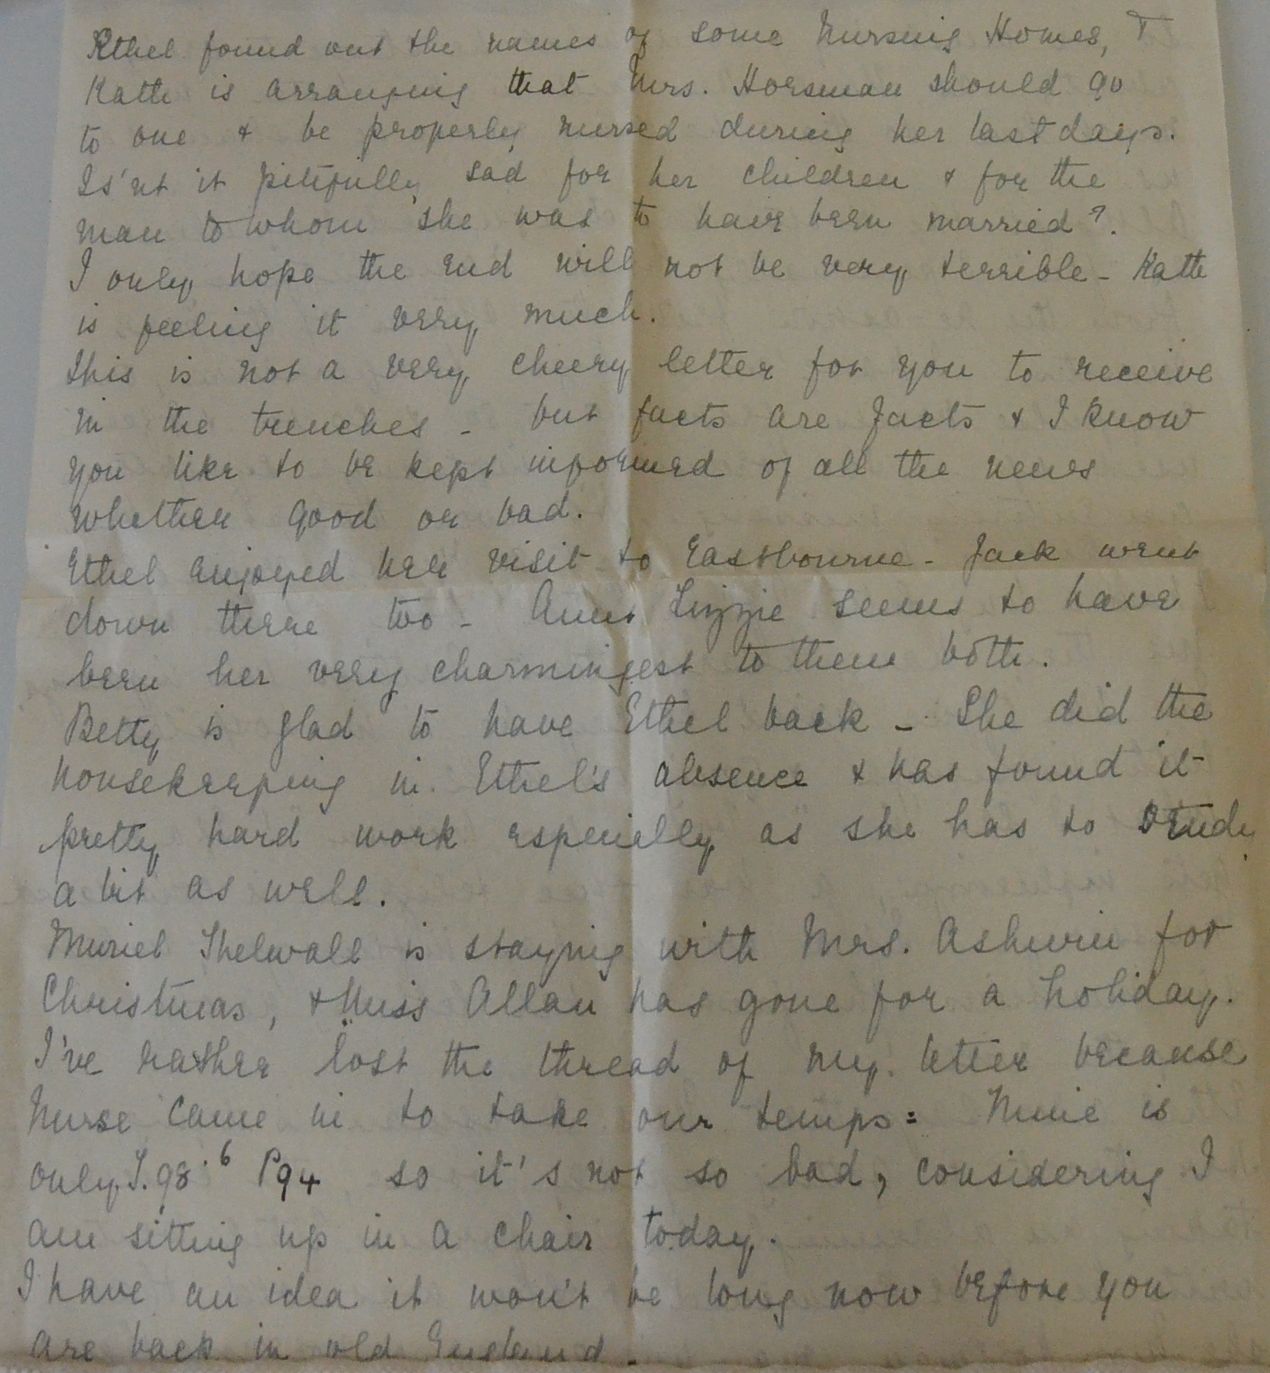 Ethel found out the names of some Nursing Homes, &
Kath is arranging that Mrs. Horsman should go
to one & be properly nursed during her last days.
Is'nt it pitifully sad for her children & for the
man to whom she was to have been married?.
I only hope the end will not be very terrible - Kath
is feeling it very much.
This is not a very cheery letter for you to receive
in the trenches - but facts are facts & I know
you like to be kept informed of all the news
whether good or bad.
Ethel enjoyed her visit to Eastbourne - Jack went
down there too - Aunt Lizzie seems to have
been her very charmingest to them both.
Betty is glad to have Ethel back - She did the
housekeeping in Ethel's absence & has found it
pretty hard work especially as she has to study
a bit as well.
Muriel Thelwall is staying with Mrs. Ashwin for
Christmas, & Miss Allan has gone for a holiday.
I've rather lost the thread of my letter because
Nurse came in to take our temps: Mine is
only T.98.6 P94 so it's not so bad, considering I
am sitting up in a chair today.
I have an idea it won't be long now before you
are back in old England.